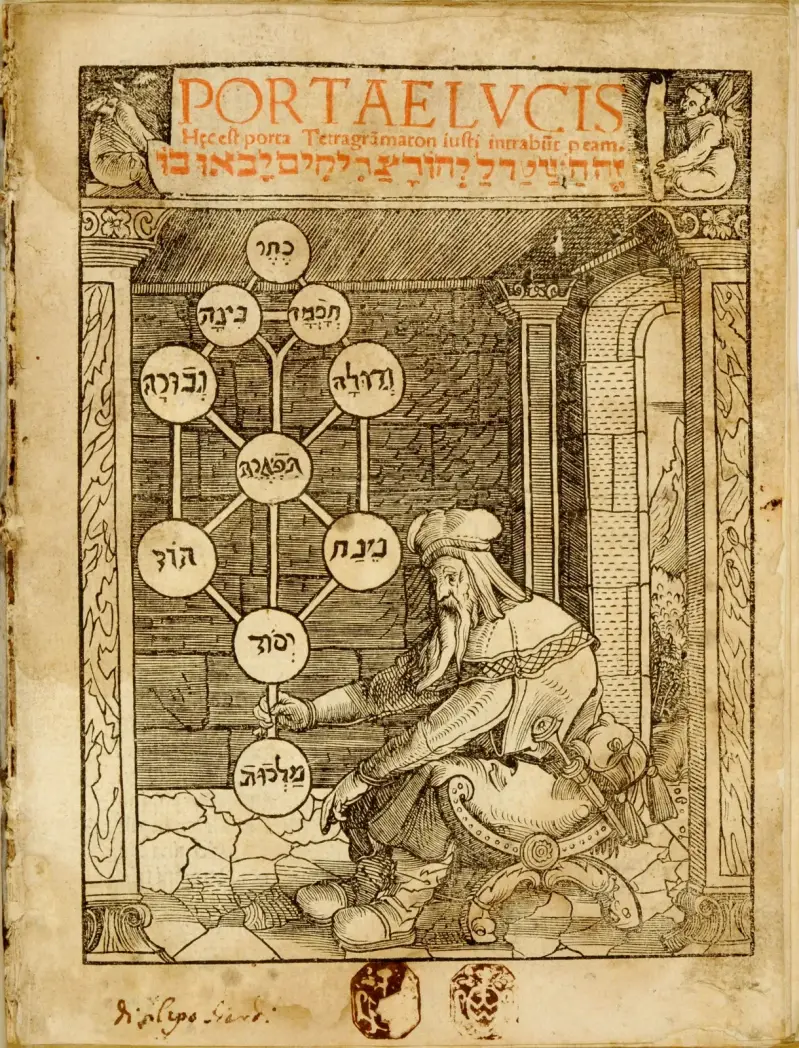 PORTAE LVCIS
Hęc est porta Tetragrāmaton iusti intrabūt p eam.
זֶה הַשַּׁעַר לַיְהוָה צַדִּיקִים יָבֹאוּ בוֹ
כֶּתֶר
בִּינָה חָכְמָה
גְּבוּרָה גְּדוּלָּה
תִּפְאֶרֶת
הוֹד נֶצַח
יְסוֹד
מַלְכוּת